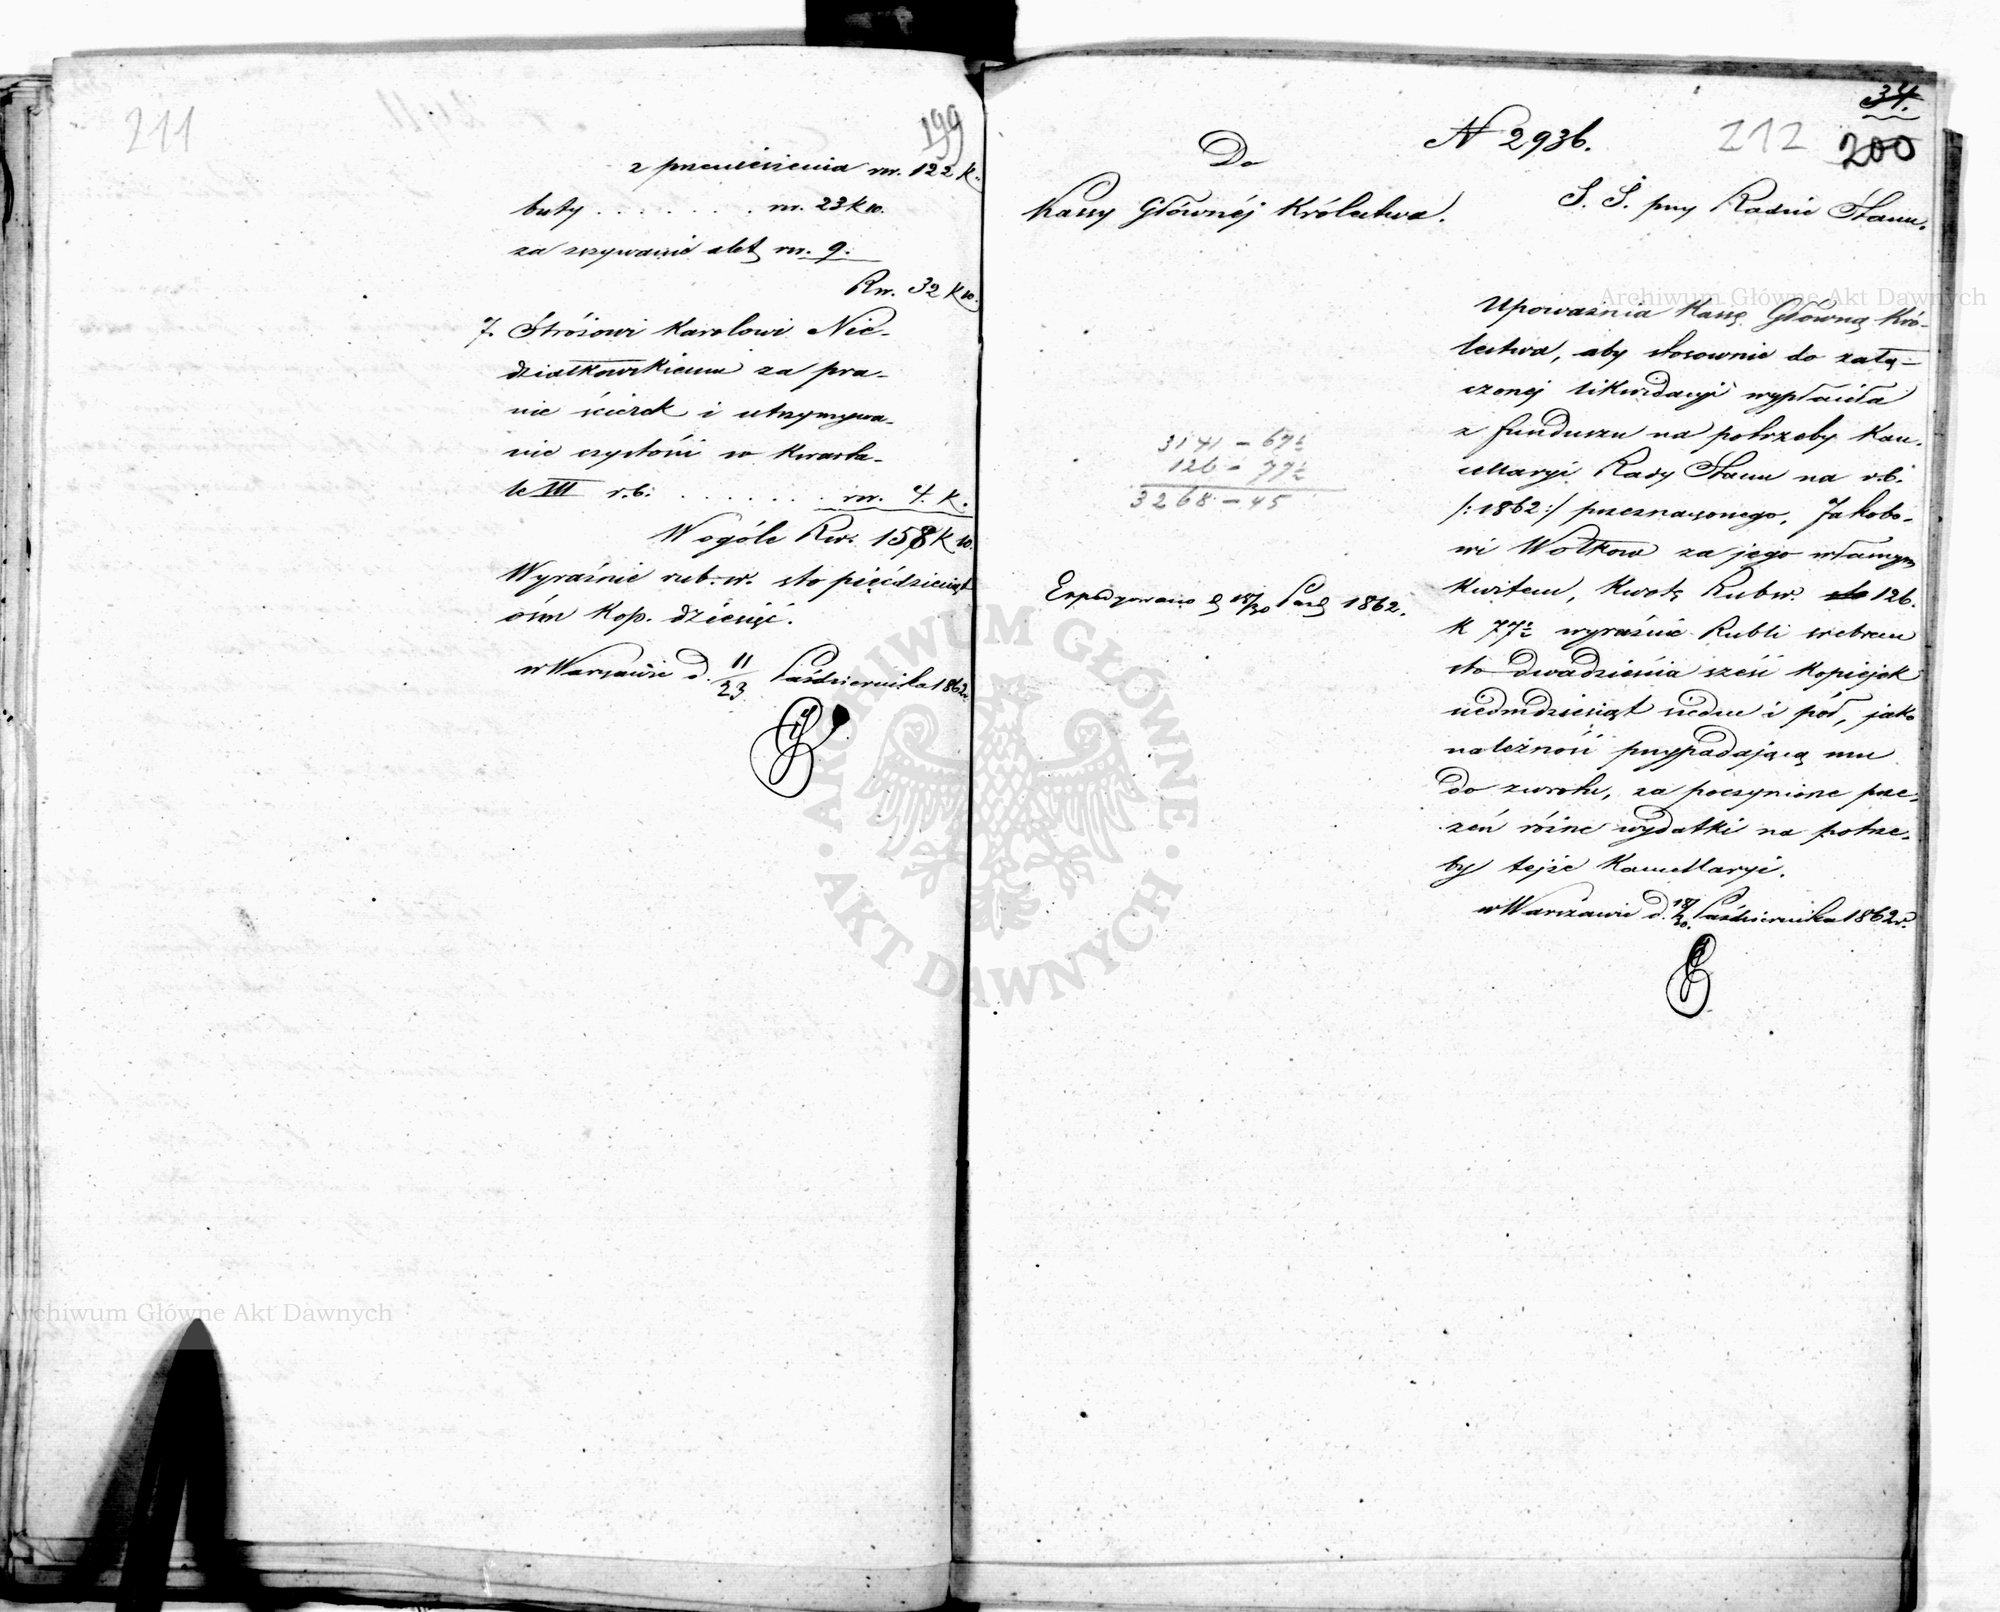 211
199
z przeniesienia rsr. 122 k.
buty . . . . . . . rsr. 23 k 10.
za zszywanie akt rsr. 9.
Rsr. 32 k 10.
7. Stróżowi Karolowi Nie-
działkowskiemu za pra-
nie ścierek i utrzymywa-
nie czystości w kwarta-
le III r.b. . . . . . . . rsr. 4. k.
W ogóle Rsr. 158 k 10.
Wyraźnie rub. sr. sto pięćdziesiąt
óśm kop. dziesięć.
w Warszawie d. 11/23 Października 1862 r.
34.
212 200
N 2936.
Do
Kassy Głównéj Królestwa.
S. S. przy Radzie Stanu.
Upoważnia Kassę Główną Kró-
lestwa, aby stosownie do załą-
czonej likwidacyi wypłaciła
z funduszu na potrzeby Kan-
cellaryi Rady Stanu na r.b.
/:1862:/ przeznaczonego, Jakobo-
wi Wołkow za jego własnym
kwitem, kwotę Rubsr. 126.
k 77½ wyraźnie Rubli srebrem
sto dwadzieścia sześć kopiejek
siedmdziesiąt siedm i pół, jako
należność przypadającą mu
do zwrotu, za poczynione prze-
zeń różne wydatki na potrze-
by tejże Kancellaryi.
w Warszawie d. 18/30. Października 1862 r.
3141 - 67½
126 - 77½
3268 - 45
Expedyowano d 18/30 Paźd 1862.
Archiwum Główne Akt Dawnych
Archiwum Główne Akt Dawnych
ARCHIWUM GŁÓWNE · AKT DAWNYCH ·